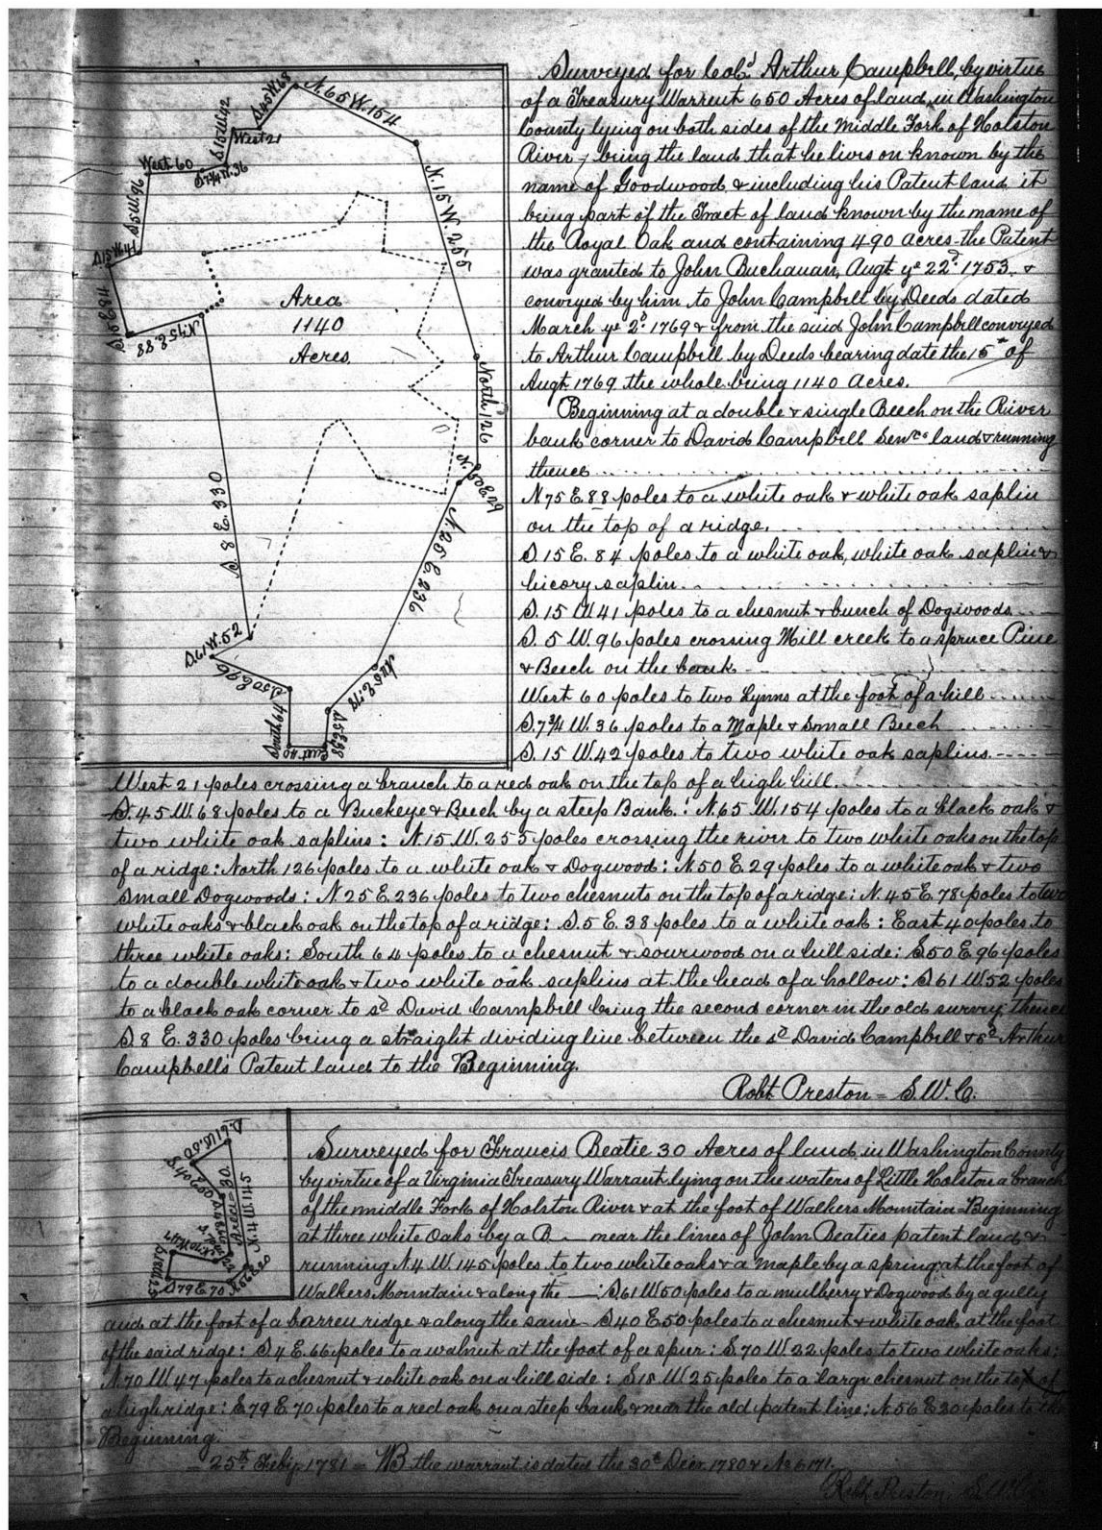 Surveyed for Colo Arthur Campbell, by virtue
of a Treasury Warrent 650 Acres of land, in Washington
County lying on both sides of the Middle Fork of Holston
River, being the land that he lives on known by the
name of Goodwood, & including his Patent land it
being part of the Tract of land known by the name of
the Royal Oak and containing 490 acres the Patent
was granted to John Buchanan, Augt ye 22d 1753. &
conveyed by him, to John Campbell by Deeds dated
March ye 2d 1769 & from the said John Campbell conveyed
to Arthur Campbell by Deeds bearing date the 15th of
Augt 1769 the whole being 1140 acres.
Beginning at a double & single Beech on the River
bank corner to David Campbell Senrs land & running
thence
N75 E. 88 poles to a white oak & white oak saplin
on the top of a ridge.
S. 15 E. 84 poles to a white oak, white oak saplin &
hicory saplin.
S. 15 W. 41 poles to a chesnut & bunch of Dogwoods
S. 5 W. 96 poles crossing Mill creek to a spruce Pine
& Beech on the bank
West 60 poles to two Lynns at the foot of a hill
S. 7¾ W. 36 poles to a Maple & Small Beech
S. 15 W. 42 poles to two white oak saplins.
West 21 poles crossing a branch to a red oak on the top of a high hill
S. 45 W. 68 poles to a Buckeye & Beech by a steep Bank: N. 65 W. 154 poles to a black oak &
two white oak saplins: N. 15 W. 255 poles crossing the river to two white oaks on the top
of a ridge: North 126 poles to a white oak & Dogwood: N. 50 E. 29 poles to a white oak & two
small Dogwoods: N 25 E. 236 poles to two chesnuts on the top of a ridge: N. 45 E. 78 poles to two
white oaks & black oak on the top of a ridge: S. 5 E. 38 poles to a white oak: East 40 poles to
three white oaks: South 64 poles to a chesnut & sourwood on a hill side: S50 E. 96 poles
to a double white oak & two white oak saplins at the head of a hollow: S. 61 W. 52 poles
to a black oak corner to sd David Campbell being the second corner in the old survey, thence
S. 8 E. 330 poles being a straight dividing line between the sd David Campbell & sd Arthur
Campbell's Patent land to the Beginning.
Robt Preston = S.W.C.
N65 W. 154
S45 W. 68
S15 W. 42
West 21
S7¾ W. 36
West 60
S5 W. 96
S15 W. 41
S15 E 84
N. 75 E. 88
N. 15 W. 255
Area
1140
Acres.
North 126
N. 50 E. 29
N. 25 E. 236
S. 8 E. 330
S. 61 W. 52
S50 E. 96
South 64
East 40
S5 E 38
N45 E. 78
Surveyed for Francis Beatie 30 Acres of land, in Washington County
by virtue of a Virginia Treasury Warrant lying on the waters of Little Holston a branch
of the middle Fork of Holston River & at the foot of Walkers Mountain Beginning
at three white Oaks by a B near the lines of John Beaties patent land &
running N4 W. 145 poles to two white oaks & a maple by a spring at the foot of
Walkers Mountain & along the : S. 61 W 50 poles to a mulberry & Dogwood by a gully
and at the foot of a barren ridge & along the same S40 E 50 poles to a chesnut & white oak at the foot
of the said ridge: S 4 E. 66 poles to a walnut at the foot of a spur: S 70 W 22 poles to two white oaks:
N. 70 W 47 poles to a chesnut & white oak on a hill side: S 18 W 25 poles to a large chesnut on the top of
a high ridge: S 79 E 70 poles to a red oak on a steep bank & near the old patent line; N. 56 E 30 poles to the
Beginning.
25th Feby. 1781 = NB the warrant is dated the 30th Decr. 1780 & No 6171.
Robt Preston, S.W.C.
S. 61 W. 50
S40 E 50
Area = 30
N. 4 W. 145
N 70 W 47
S 79 E 70